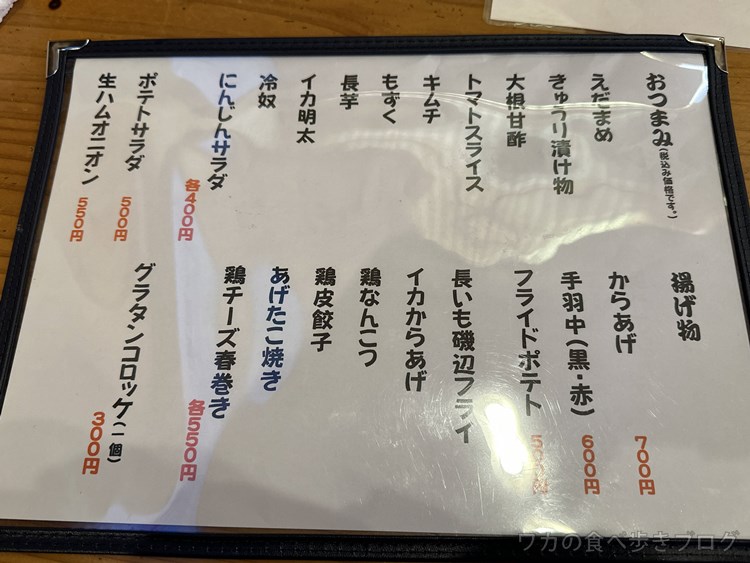 おつまみ(税込み価格です。)
えだまめ
きゅうり漬け物
大根甘酢
トマトスライス
キムチ
もずく
長芋
イカ明太
冷奴
にんじんサラダ
各400円
ポテトサラダ
500円
生ハムオニオン
550円
揚げ物
からあげ
700円
手羽中(黒・赤)
600円
フライドポテト
長いも磯辺フライ
イカからあげ
鶏なんこつ
鶏皮餃子
あげたこ焼き
鶏チーズ春巻き
各550円
グラタンコロッケ(一個)
300円
ワカの食べ歩きブログ